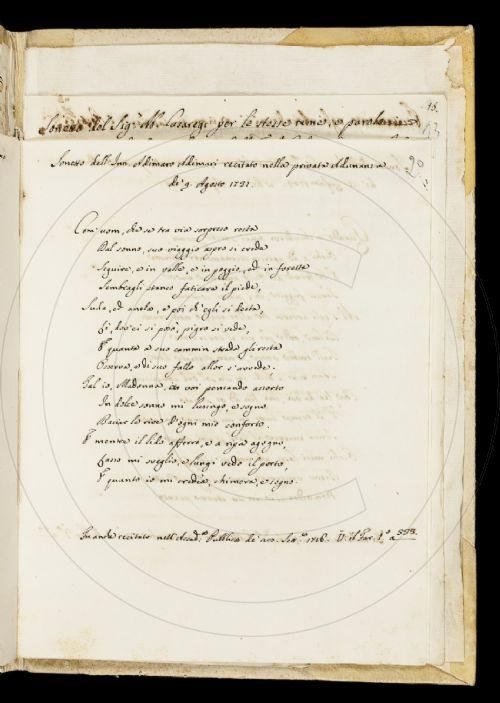 16.
Sonetto del Sig.r Ab. Casaregi per le stesse rime, e parole
13
Sonetto dell' Inn. Adimaro Adimari recitato nella privata Adunanza
20
de' 9. Agosto 1721.
Com' uom, che se tra via sorpreso resta
Dal sonno, suo viaggio aspro si creda
Seguire, e in valle, e in poggio, ed in foresta
Sembragli stanco faticare il piede,
Suda, ed anela, e poi ch' egli si desta,
Lì, dov' ei si posò, pigro si vede,
E quanta a suo cammin strada gli resta
Osserva, e di suo fallo allor s' avvede.
Tal io, Madonna, in voi pensando assorto
In dolce sonno mi lusingo, e sogno
Baciar le rive d' ogni mio conforto.
E mentre il lido afferro, e a ripa agogno,
Lasso mi sveglio, e lungi vedo il porto,
E quanto io mi credea, chimera, e sogno.
recitato nell' Accad.a Pubblica de' 1716. V. il a 593.